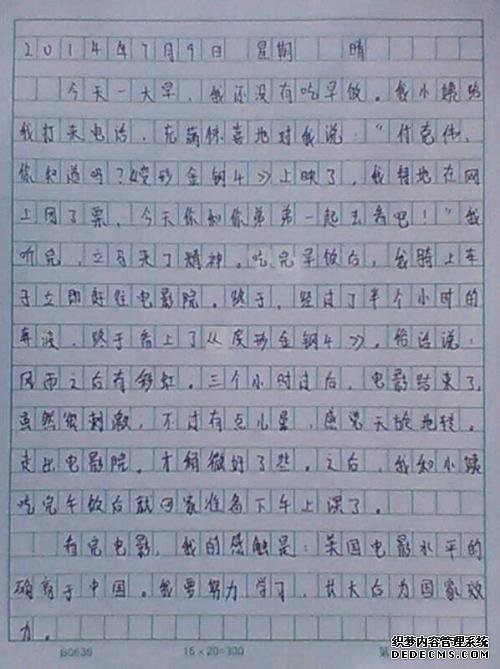 2014年7月9日 星期 晴
今天一大早,我还没有吃早饭。我小姨给
我打来电话,充满惊喜地对我说:“付克伟,
你知道吗?《变形金钢4》上映了,我特地在网
上团了票,今天你和你弟弟一起去看吧!”我
听完,立马来了精神。吃完早饭后,我骑上车
子立即赶往电影院。终于,经过了半个小时的
奔波,终于看上了《变形金钢4》。俗话说:
风雨之后有彩虹。三个小时过后,电影结束了,
虽然蛮刺激,不过有点儿晕,感觉天旋地转。
走出电影院,才稍微好了些。之后,我和小姨
吃完午饭后就回家准备下午上课了。
看完电影,我的感触是:美国电影水平的
确高于中国。我要努力学习,长大后为国家效
力。
B0639 15×20=300 第
织梦内容管理系统
DEDECMS.COM